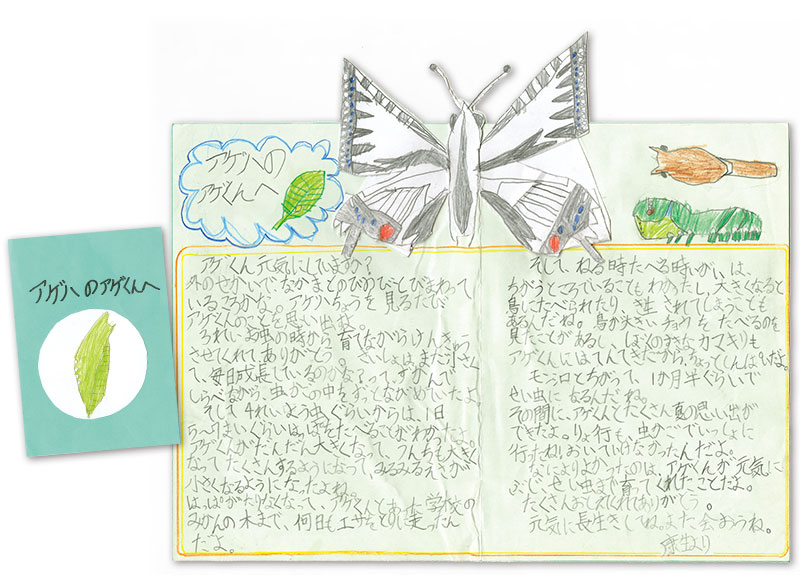 アゲハのアゲくんへ
アゲハの
アゲくんへ
アゲくん元気にしてますか?
外のせかいで、なかまとのびのびととびまわって
いるころかな。アゲハちょうを見るたび
アゲくんのことを思い出すよ。
られいよう虫の時から育てながらけんきゅう
させてくれてありがとう。さいしょは、まだ小さく
て、毎日成長しているのかなぁって、ずかんで
しらべながら、虫かごの中をずっとながめていたよ
そして4れいよう虫ぐらいからは、1日
まいぐらいはっぱをたべることがわかったよ。
アゲくんがだんだん大きくなって、うんちも大きく
なってたくさんするようになって、みるみるえさが
小さくなるようになったよね。
はっぱがたりなくなって、アゲくんとあった学校の
みかんの木まで、何日もエサをとりに走ったん
だよ。
そして、ねる時たべる時いがいは、
ちがうところでいることもわかったし、大きくなると
鳥にたべられたり、き生されてしまうことも
あるんだね。鳥が大きいチョウをたべるのを
見たことがあるし、ぼくのまなカマキリも
アゲくんにはてんてきだから、ちょっとしんぱいだよ。
モンシロとちがって、1か月半ぐらいで
せい虫になるんだね。
その間に、アゲくんとたくさん夏の思い出が
できたよ。りょ行も、虫かごでいっしょに
行ったね!おいていけなかったんだよ。
なによりよかったのは、アゲくんが元気に
ぶじ、せい虫まで育ってくれたことだよ。
たくさんおしえてくれてありがとう。
元気に長生きしてね。また会おうね。
康生より